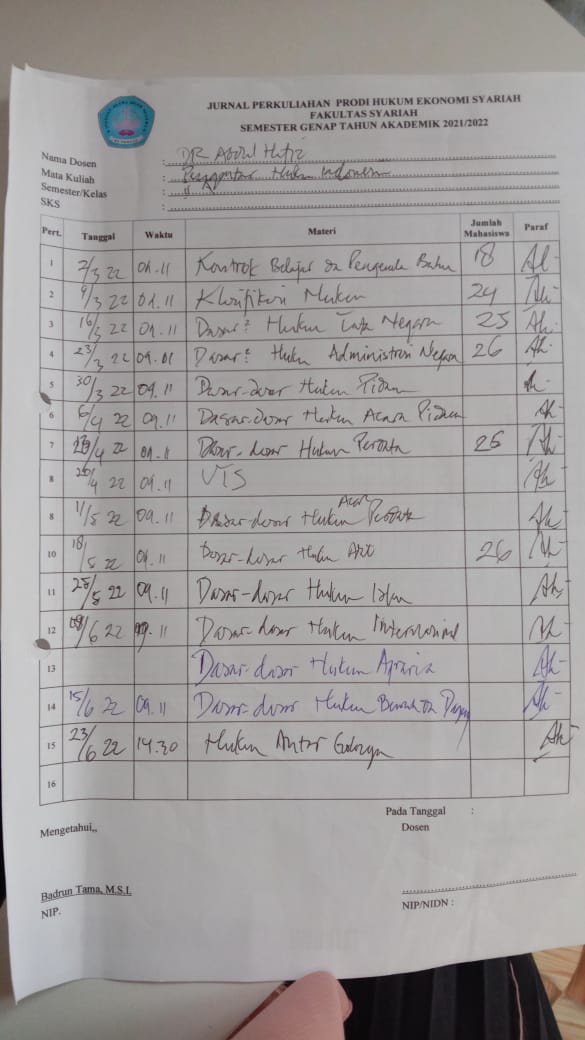 JURNAL PERKULIAHAN PRODI HUKUM EKONOMI SYARIAH
FAKULTAS SYARIAH
SEMESTER GENAP TAHUN AKADEMIK 2021/2022
Nama Dosen : DR Abdul Hafiz
Mata Kuliah : Hukum Indonesia
Semester/Kelas : II
SKS :
Pert. Tanggal Waktu Materi Jumlah Mahasiswa Paraf
1 2/3 22 09.11 Kontrak Belajar 18
2 9/3 22 09.11 Hukum 24
3 16/3 22 09.11 Dasar2 Hukum Tata Negara 25
4 23/3 22 09.01 Dasar2 Hukum Administrasi Negara 26
5 30/3 22 09.11 Dasar-dasar Hukum Pidana
6 6/4 22 09.11 Dasar-dasar Hukum Acara Pidana
7 /4 22 09.11 Dasar-dasar Hukum Perdata 25
8 /4 22 09.11 UTS
8 11/5 22 09.11 Dasar-dasar Hukum Acara Perdata
10 18/5 22 09.11 Dasar-dasar Hukum 26
11 25/5 22 09.11 Dasar-dasar Hukum Islam
12 /6 22 09.11 Dasar-dasar Hukum Internasional
13 Dasar-dasar Hukum Agraria
14 15/6 22 09.11 Dasar-dasar Hukum
15 23/6 22 14.30 Hukum Antar Golongan
16
Pada Tanggal :
Mengetahui,, Dosen
Badrun Tama, M.S.I.
NIP. NIP/NIDN :